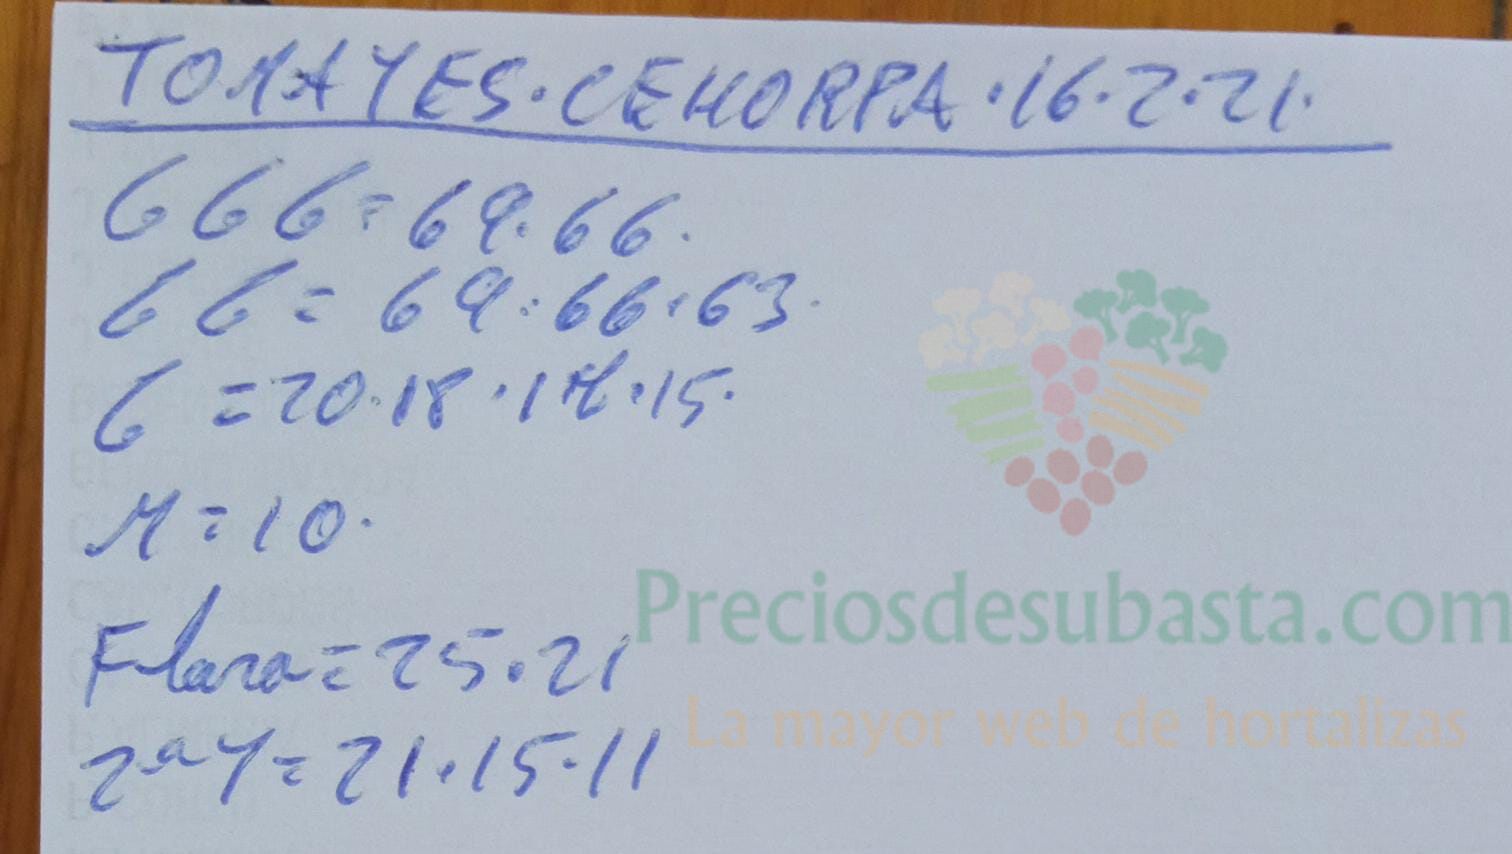 TOMATES·CEHORPA·16·2·21.
GGG=69·66.
GG=69·66·63.
G=20·18·17·15.
M=10.
Flara=25·21
2ªY=21·15·11
Preciosdesubasta.com
La mayor web de hortalizas